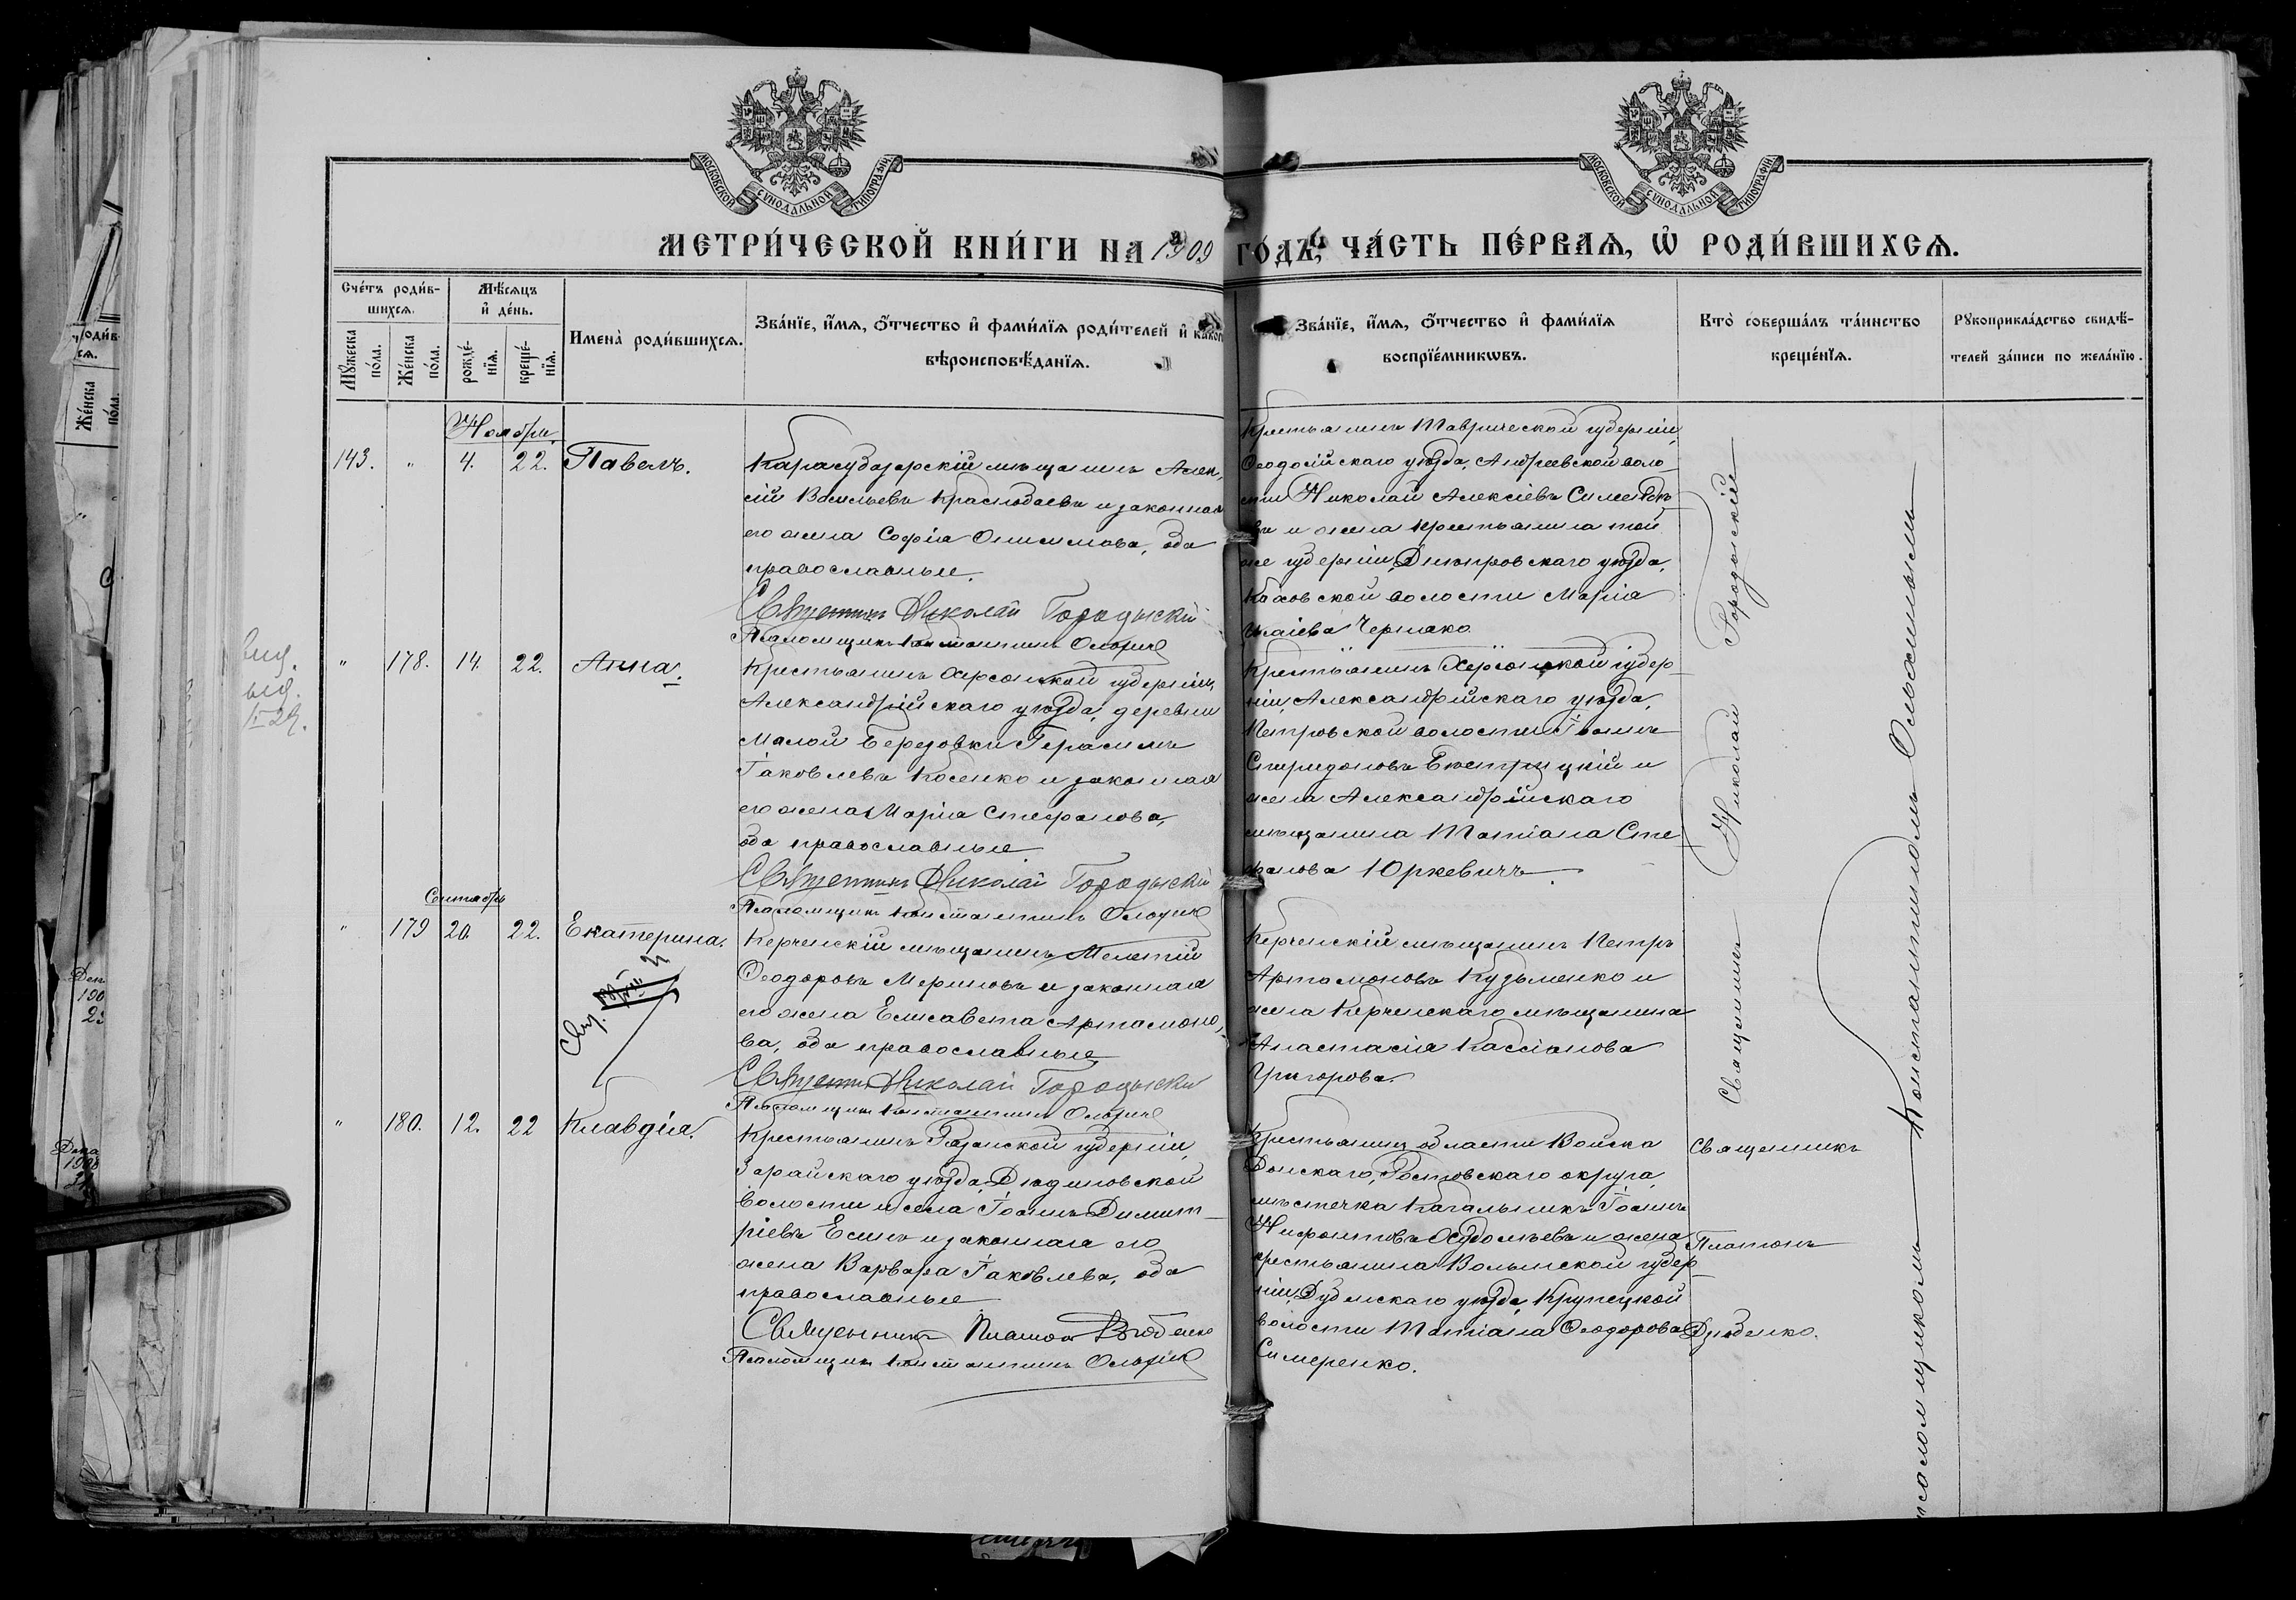 МОСКОВСКОЙ СѴНОДАЛЬНОЙ ТИПОГРАФІИ
МОСКОВСКОЙ СѴНОДАЛЬНОЙ ТИПОГРАФІИ
МЕТРИ́ЧЕСКОЙ КНИ́ГИ НА 1909 ГО́ДЪ, ЧА́СТЬ ПЕ́РВАЯ, Ѡ҆ РОДИ́ВШИХСЯ.
Сче́тъ роди́в-
шихся.
Мꙋ́жеска по́ла.
Же́нска по́ла.
Мѣ́сяцъ
и҆ де́нь.
рожде́-
нїя.
креще́-
нїя.
Имена̀ роди́вшихся.
Зва́нїе, и҆́мя, ѻ҆́тчество и҆ фами́лїя роди́телей и҆ како́г
вѣроисповѣ́данїя.
Зва́нїе, и҆́мя, ѻ҆́тчество и҆ фами́лїя
воспрїе́мникѡвъ.
Кто̀ соверша́лъ та́инство
креще́нїя.
Рꙋкоприкла́дство свидѣ́-
телей за́писи по жела́нїю.
Ноября.
143. " 4. 22. Павелъ.
Карасубазарскій мѣщанинъ Алек-
сій Васильевъ Краснобаевъ и законная
его жена Софія Онисимова, оба
православные.
Священникъ Николай Городыскій
Псаломщикъ Константинъ
Крестьянинъ Таврической губерніи,
Ѳеодосійскаго уѣзда, Андреевской воло-
сти Николай Алексіевъ
въ и жена крестьянина той
же губерніи, Днѣпровскаго уѣзда,
Каховской волости Марія
Исаіева Черняко.
" 178. 14. 22. Анна.
Крестьянинъ Херсонской губерніи,
Александрійскаго уѣзда, деревни
Малой Березовки Герасимъ
Іаковлевъ Косенко и законная
его жена Марія Стефанова,
оба православные
Священникъ Николай Городыскій
Псаломщикъ Константинъ
Крестьянинъ Херсонской губер-
ніи, Александрійскаго уѣзда,
Петровской волости Іоаннъ
Спиридоновъ и
жена Александрійскаго
мѣщанина Татіана Сте-
фанова Юркевичъ.
Сентябрь
" 179 20. 22. Екатерина.
Керченскій мѣщанинъ Мелетій
Ѳеодоровъ Мериновъ и законная
его жена Елисавета Артамоно-
ва, оба православные
Священникъ Николай Городыскій
Псаломщикъ Константинъ
Керченскій мѣщанинъ Петръ
Артамоновъ Кузьменко и
жена Керченскаго мѣщанина
Анастасія Кассіанова
Григорова.
" 180. 12. 22 Клавдія.
Крестьянинъ Рязанской губерніи,
Зарайскаго уѣзда,
волости и села Іоаннъ Димит-
ріевъ Есинъ и законная его
жена Варвара Іаковлева, оба
православные
Священникъ Платонъ Дзюбенко
Псаломщикъ Константинъ
Крестьянинъ области Войска
Донскаго, Ростовскаго округа,
мѣстечка Кагальникъ Іоаннъ
Нифонтовъ и жена
крестьянина Волынской губер-
ніи, Дубенскаго уѣзда, Крупецкой
волости Татіана Ѳеодорова
Симеренко.
Священникъ Николай Городыскій
Священникъ
Платонъ
Дзюбенко.
псаломщикомъ Константиномъ